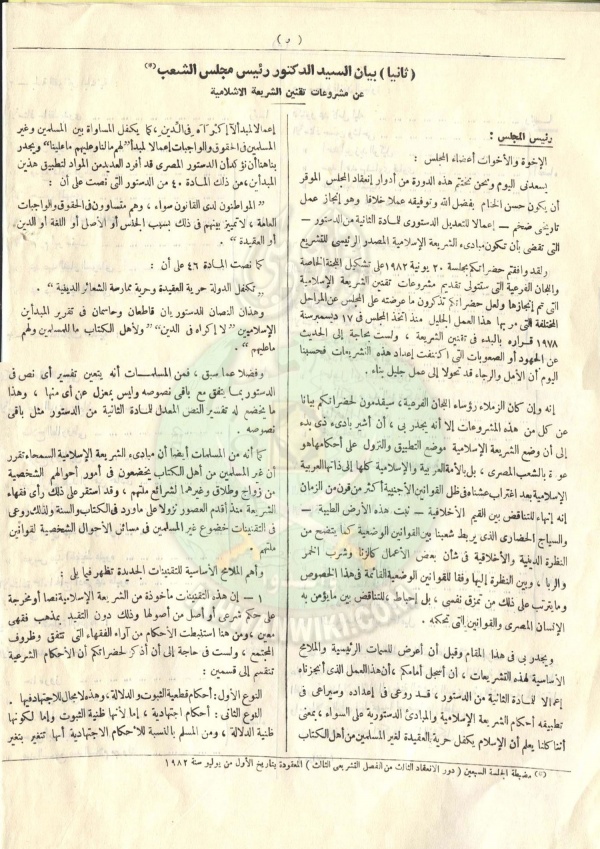 ( ٥ )
( ثانيا ) بيان السيد الدكتور رئيس مجلس الشعب (*)
عن مشروعات تقنين الشريعة الاسلامية
رئيس المجلس :
الإخوة والأخوات أعضاء المجلس :
يسعدنى اليوم ونحن نختتم هذه الدورة من أدوار إنعقاد المجلس الموقر
أن يكون حسن الختام بفضل الله وتوفيقه عملا خلاقا وهو إنجاز عمل
تاريخى ضخم – إعمالا للتعديل الدستورى للمادة الثانية من الدستور –
التى تقضى بأن تكون مبادىء الشريعة الإسلامية المصدر الرئيسى للتشريع
ولقد وافقتم حضراتكم بجلسة ٢٠ يونية ١٩٨٢ على تشكيل اللجنة الخاصة
واللجان الفرعية التى ستتولى تقديم مشروعات تقنين الشريعة الإسلامية
التى تم إنجازها ولعل حضراتكم تذكرون ما عرضته على المجلس عن المراحل
المختلفة التى مر بها هذا العمل الجليل منذ اتخذ المجلس فى ١٧ ديسمبر سنة
١٩٧٨ قراره بالبدء فى تقنين الشريعة ، ولست بحاجة إلى الحديث
عن الجهود أو الصعوبات التى اكتنفت إعداد هذه التشريعات فحسبنا
اليوم أن الأمل والرجاء قد تحولا إلى عمل جليل بناء .
إنه وإن كان الزملاء رؤساء اللجان الفرعية ، سيقدمون لحضراتكم بيانا
عن كل من هذه المشروعات إلا أنه يجدر بى ، أن أشير بادىء ذى بدء
إلى أن وضع الشريعة الإسلامية موضع التطبيق والنزول على أحكامها هو
عودة بالشعب المصرى ، بل بالأمة العربية والإسلامية كلها إلى ذاتها العربية
الإسلامية بعد اغتراب عشناه فى ظل القوانين الأجنبية أكثر من قرن من الزمان
إنه إنهاء للتناقض بين القيم الأخلاقية – نبت هذه الأرض الطيبة –
والسياج الحضارى الذى يربط شعبنا بين القوانين الوضعية كما يتضح من
النظرة الدينية والأخلاقية فى شأن بعض الأعمال كالزنا وشرب الخمر
والربا ، وبين النظرة إليها وفقا للقوانين الوضعية القائمة فى هذا الخصوص
وما يترتب على ذلك من تمزق نفسى ، بل إحباط ، للتناقض بين ما يؤمن به
الإنسان المصرى والقوانين التى تحكمه .
ويجدر بى فى هذا المقام وقبل أن أعرض للسمات الرئيسية والملامح
الأساسية لهذه التشريعات ، أن أسجل أمامكم ، أن هذا العمل الذى أنجزناه
إعمالا للمادة الثانية من الدستور ، قد روعى فى إعداده وسيراعى فى
تطبيقه أحكام الشريعة الإسلامية والمبادئ الدستورية على السواء ، بمعنى
أننا كلنا يعلم أن الإسلام يكفل حرية العقيدة لغير المسلمين من أهل الكتاب
إعمالا لمبدأ لا إكراه فى الدين ، كما يكفل المساواة بين المسلمين وغير
المسلمين فى الحقوق والواجبات إعمالا لمبدأ "لهم مالنا وعليهم ماعلينا" ويجدر
بنا هنا أن نؤكد أن الدستور المصرى قد أفرد العديد من المواد لتطبيق هذين
المبدأين ، من ذلك المادة ٤٠ من الدستور التى نصت على أن :
" المواطنون لدى القانون سواء ، وهم متساوون فى الحقوق والواجبات
العامة ، لا تمييز بينهم فى ذلك بسبب الجنس أو الأصل أو اللغة أو الدين
أو العقيدة " .
كما نصت المادة ٤٦ على أن :
" تكفل الدولة حرية العقيدة وحرية ممارسة الشعائر الدينية "
وهذان النصان الدستوريان قاطعان وحاسمان فى تقرير المبدأين
الإسلاميين " لا إكراه فى الدين " " ولأهل الكتاب ما للمسلمين ولهم
ما عليهم "
وفضلا عما سبق ، فمن المسلمات أنه يتعين تفسير أى نص فى
الدستور بما يتفق مع باقى نصوصه وليس بمعزل عن أى منها ، وهذا
ما يخضع له تفسير النص المعدل للمادة الثانية من الدستور مثل باقى
نصوصه .
كما أنه من المسلمات أيضا أن مبادىء الشريعة الإسلامية السمحاء تقرر
أن غير المسلمين من أهل الكتاب يخضعون فى أمور أحوالهم الشخصية
من زواج وطلاق وغيرهما لشرائع ملتهم ، وقد استقر على ذلك رأى فقهاء
الشريعة منذ أقدم العصور نزولا على ما ورد فى الكتاب والسنة ولذلك روعى
فى التقنينات خضوع غير المسلمين فى مسائل الأحوال الشخصية لقوانين
ملتهم .
وأهم الملامح الأساسية للتقنينات الجديدة تظهر فيما يلى :
١ – إن هذه التقنينات مأخوذة من الشريعة الإسلامية نصا أو مخرجة
على حكم شرعى أو أصل من أصولها وذلك دون التقيد بمذهب فقهى
معين ، ومن هنا استنبطت الأحكام من آراء الفقهاء التى تتفق وظروف
المجتمع ، ولست فى حاجة إلى أن أذكر لحضراتكم أن الأحكام الشرعية
تنقسم إلى قسمين :
النوع الأول : أحكام قطعية الثبوت والدلالة ، وهذه لا مجال للاجتهاد فيها .
النوع الثانى : أحكام اجتهادية ، إما لأنها ظنية الثبوت وإما لكونها
ظنية الدلالة ، ومن المسلم بالنسبة للأحكام الاجتهادية أنها تتغير بتغير
(*) مضبطة الجلسة السبعين ( دور الانعقاد الثالث من الفصل التشريعى الثالث ) المعقودة بتاريخ الأول من يوليو سنة ١٩٨٢